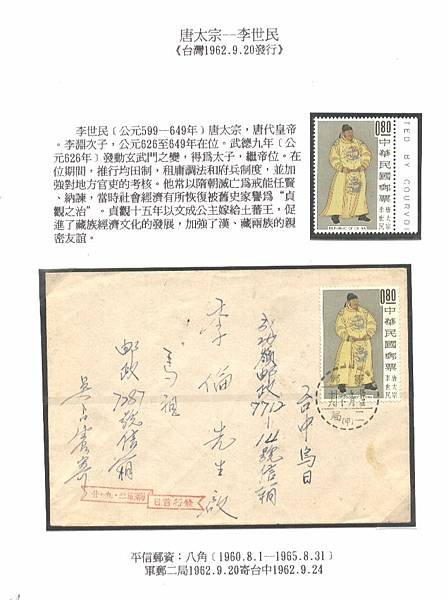 唐太宗--李世民
《台灣1962.9.20發行》
李世民﹝公元599—649年﹞唐太宗，唐代皇帝
。李淵次子，公元626至649年在位。武德九年﹝公
元626年﹞發動玄武門之變，得爲太子，繼帝位。在
位期間，推行均田制，租庸調法和府兵制度，並加
強對地方官吏的考核。他常以隋朝滅亡爲戒能任賢
、納諫，當時社會經濟有所恢復被舊史家譽爲“貞
觀之治”。貞觀十五年以文成公主嫁給土蕃王，促
進了藏族經濟文化的發展，加強了漢、藏兩族的親
密友誼。
0.80
中華民國郵票
唐太宗
李世民
REPUBLIC OF CHINA
TED BY COURVO
0.80
中華民國郵票
唐太宗
李世民
台中烏日
成功嶺郵政7712-14號信箱
李倫先生啟
馬祖
郵政7287號信箱
發行首日
平信郵資：八角﹝1960.8.1—1965.8.31﹞
軍郵二局1962.9.20寄台中1962.9.24